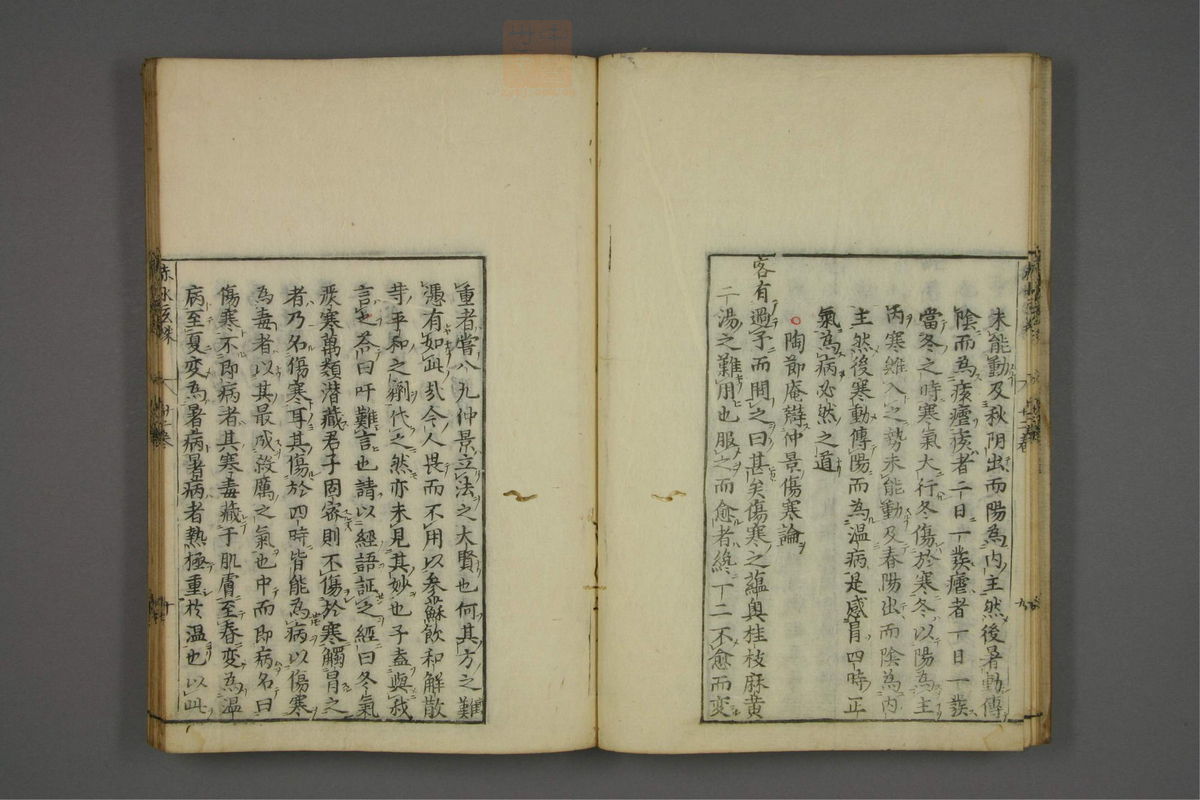 未能動及秋阴出而陽為内主然後暑動傳
陰而為痎瘧痎者二日一發瘧者一日一發
當冬之時寒氣大行冬傷於寒冬以陽為主
内寒雖入之勢未能動及春陽出而陰為内
主然後寒動傳陽而為温病是感冒四時正
氣為病必然之道
陶節庵辯仲景傷寒論
客有過予而問之曰甚矣傷寒之蘊奥桂枝麻黄
二湯之難用也服之而愈者終一二不愈而変
重者嘗八九仲景立法之大賢也何其方之難
憑有如此㢤今人畏而不用以参蘇飲和解散
等平和之劑代之然亦未見其妙也子盍與我
言之荅曰吁難言也請以經語証之經曰冬氣
嚴寒萬類潜藏君子固密則不傷於寒觸冒之
者乃名傷寒耳其傷於四時皆能為病以傷寒
為毒者以其最成殺厲之氣也中而即病名曰
傷寒不即病者其寒毒藏于肌膚至春変為温
病至夏変為暑病暑病者熱極重於温也以此
赤水玄珠